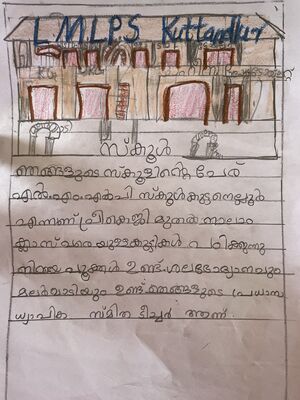 L.M.L.P.S Kuttanellur
സ്കൂൾ
ഞങ്ങളുടെ സ്കൂളിൻ്റെ പേര്
എൽ.എം.എൽ.പി സ്കൂൾ കുട്ടനെല്ലൂർ
എന്നാണ് പ്രീകെജി മുതൽ നാലാം
ക്ലാസ് വരെയുള്ള കുട്ടികൾ പഠിക്കുന്നു
നിറയെ പൂക്കൾ ഉണ്ട്. ശലഭോദ്യാനവും
മലർവാടിയും ഉണ്ട്. ഞങ്ങളുടെ പ്രധാനാ
ധ്യാപിക സ്മിത ടീച്ചർ ആണ്.